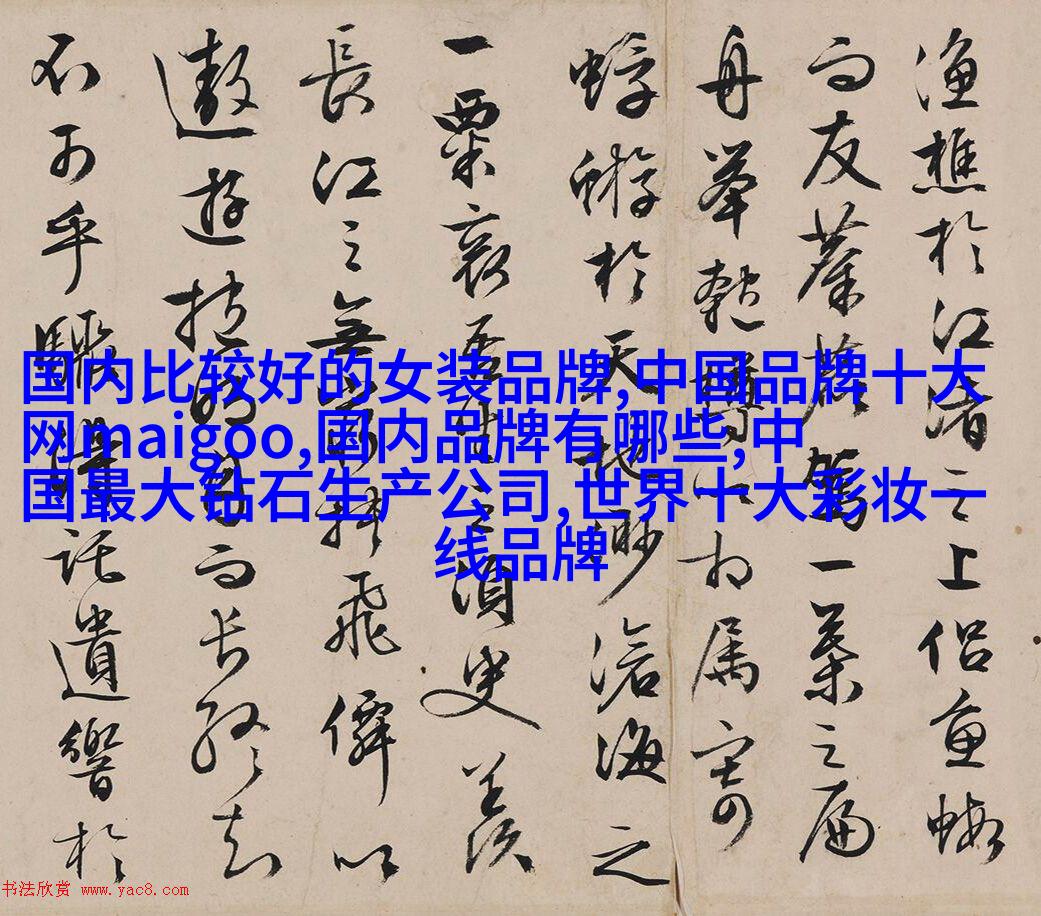 漁樵於江渚之上侣魚蝦
而友麋鹿駕一葉之扁
舟舉匏樽以相属寄
蜉蝣於天地渺滄海之
一粟哀吾生之須臾羨
長江之無窮挾飛僊以
遨遊抱明月而長終知
不可乎驟得託遺響於
国内比较好的女装品牌,中国品牌十大
网maigoo,国内品牌有哪些,中
国最大钻石生产公司,世界十大彩妆一
线品牌
书法欣赏 www.yac8.com